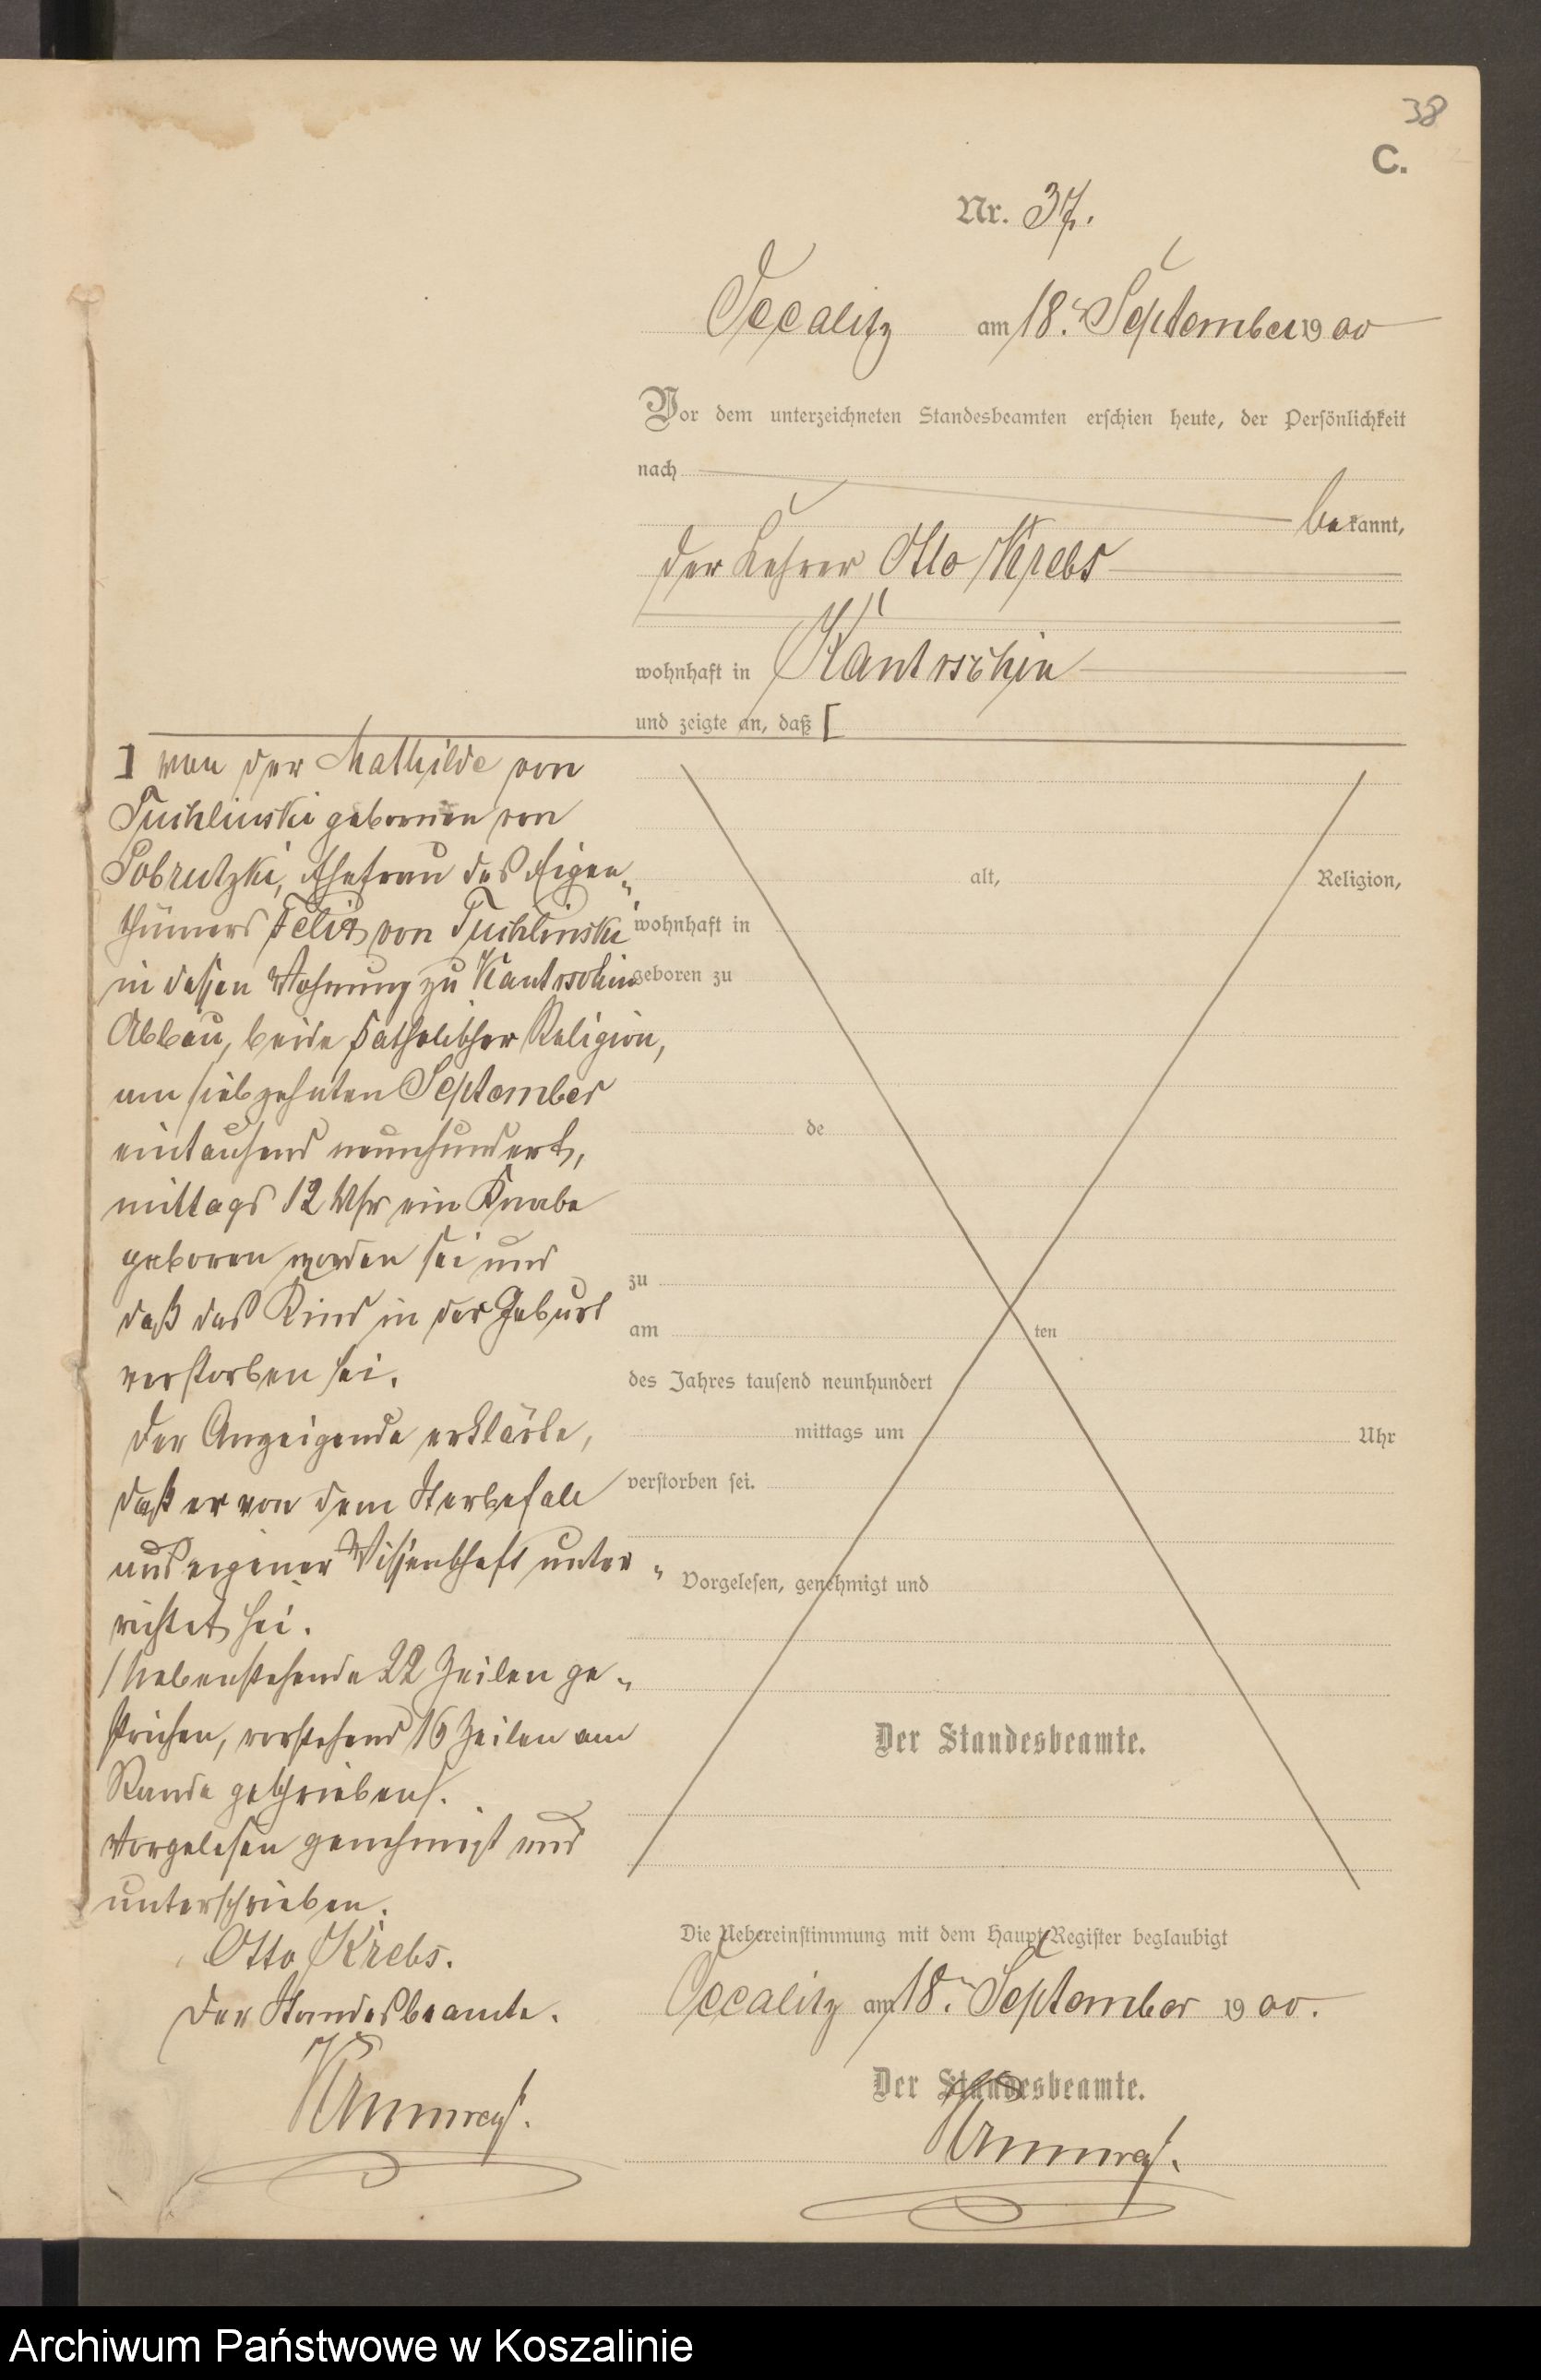 38
C.
Nr. 37.
Occalitz am 18. September 1900
Vor dem unterzeichneten Standesbeamten erschien heute, der Persönlichkeit
nach
bekannt,
der Lehrer Otto Krebs
wohnhaft in Kantrschin
und zeigte an, daß [
] von der Mathilde von
Tuchlinski geborenen von
Sobrutzki, Ehefrau des Eigen„
thümers Felix von Tuchlinski
in dessen Wohnung zu Kantrschin
Abbau, beide katholischer Religion,
am siebzehnten September
eintausend neunhundert,
mittags 12 Uhr ein Knabe
geboren worden sei und
daß das Kind in der Geburt
verstorben sei.
Der Anzeigende erklärte,
daß er von dem Sterbefall
aus eigener Wissenschaft unter„
richtet sei.
/ Nebenstehende 22 Zeilen ge„
strichen, vorstehend 16 Zeilen am
Rande geschrieben/.
Vorgelesen genehmigt und
unterschrieben.
Otto Krebs.
Der Standesbeamte.
alt, Religion,
wohnhaft in
geboren zu
de
zu
am ten
des Jahres tausend neunhundert
mittags um Uhr
verstorben sei.
Vorgelesen, genehmigt und
Der Standesbeamte.
Die Uebereinstimmung mit dem Haupt-Register beglaubigt
Occalitz am 18. September 1900.
Der Standesbeamte.
Archiwum Państwowe w Koszalinie